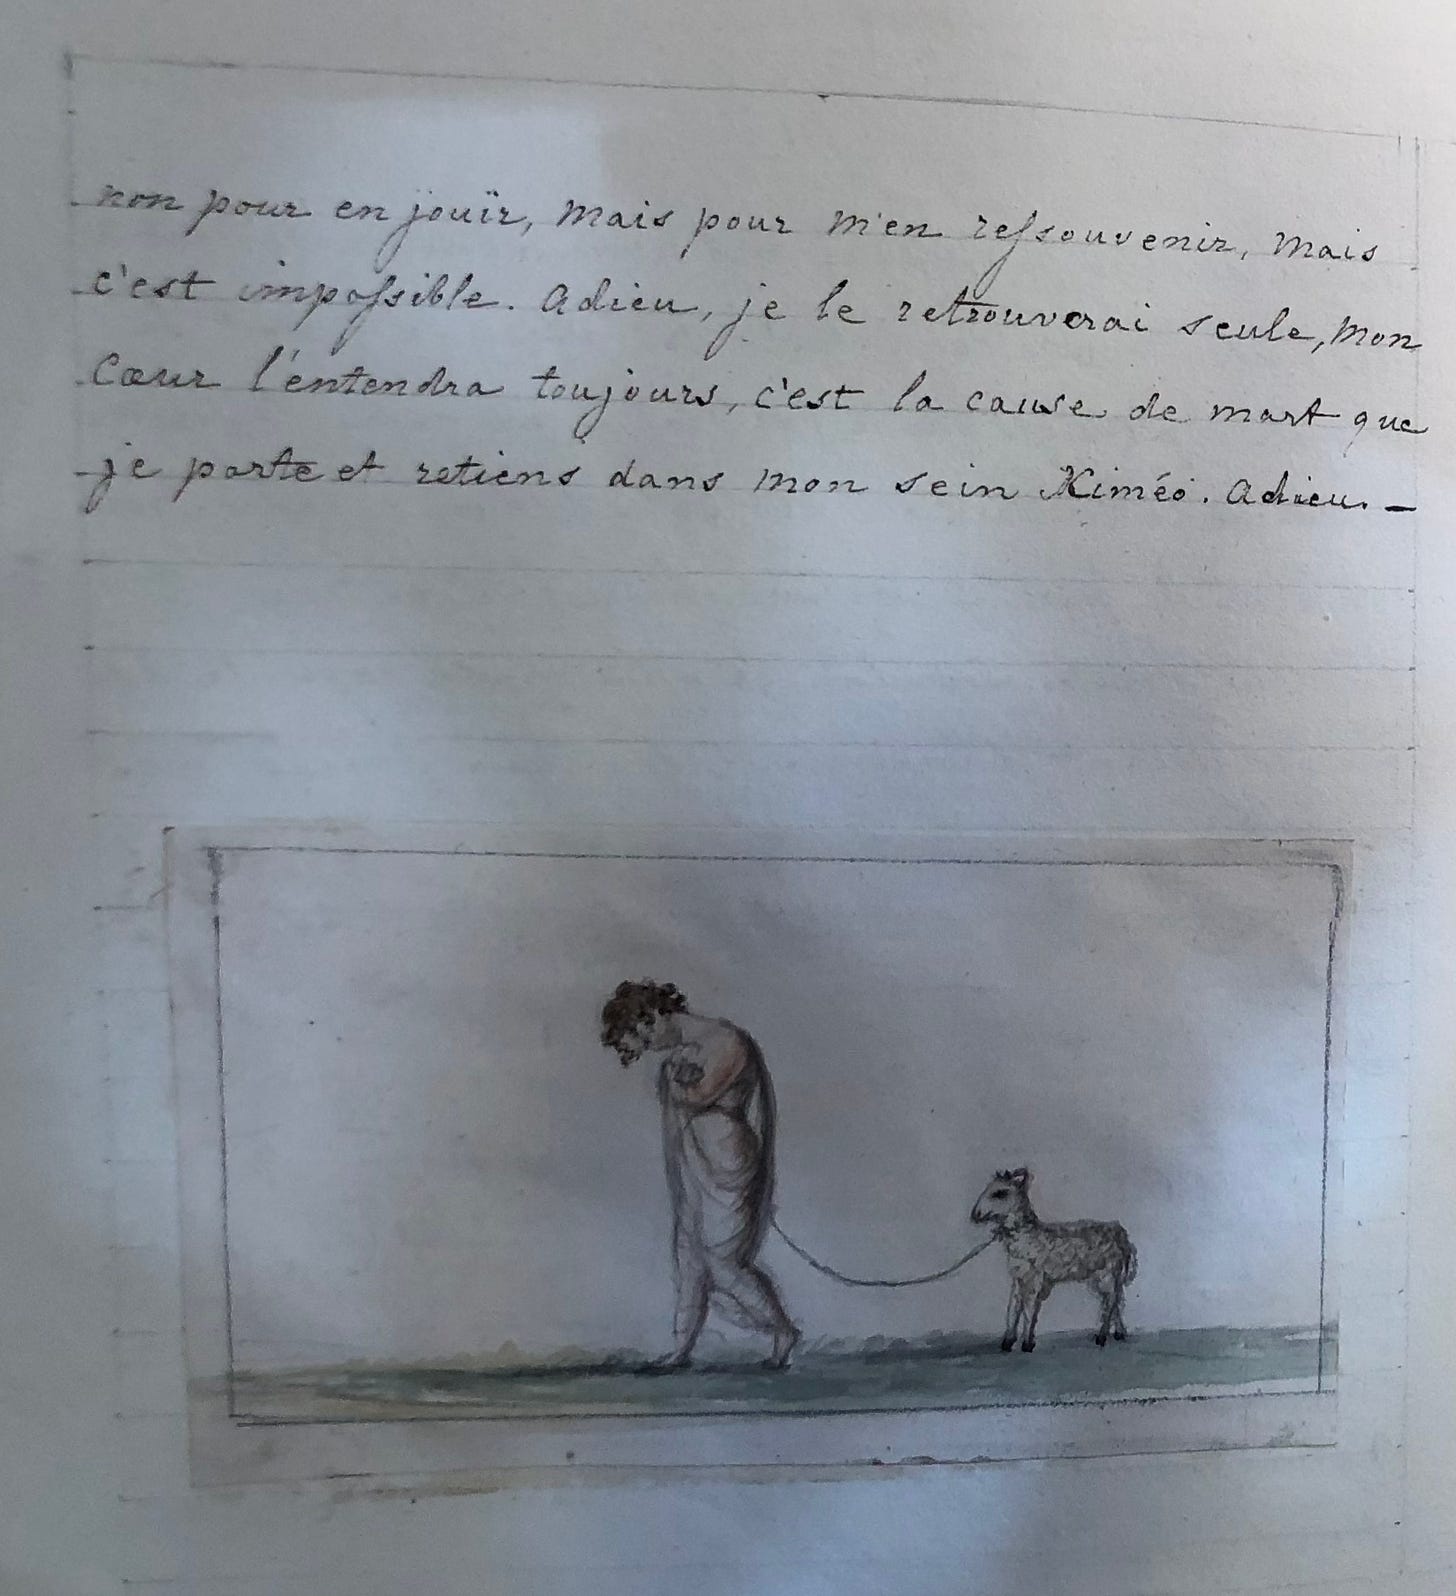 non pour en jouïr, mais pour m'en ressouvenir, mais
c'est impossible. adieu, je le retrouverai seule, mon
cœur l'entendra toujours, c'est la cause de mort que
je porte et retiens dans mon sein Ximéo. adieu. —